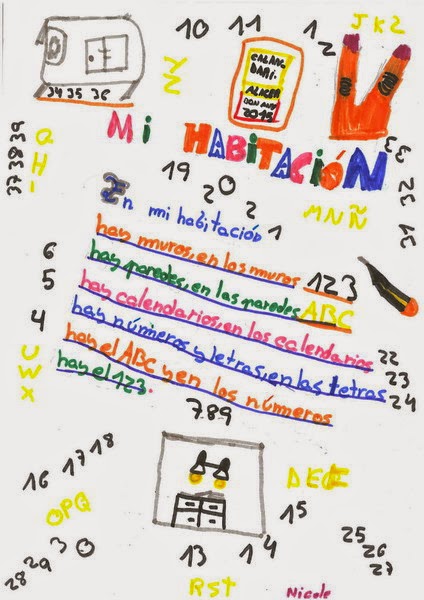 10 11 12
JKZ
CALAN
DARI.
ALACER
2015
34 35 36
YZ
MI HABITACIÓN
37 38 39
GHI
19
20
21
MNÑ
33
32
31
En mi habitación
hay muros, en los muros 123
hay paredes, en las paredes ABC
hay calendarios, en los calendarios
hay números y letras, en las letras
hay el ABC y en los números
hay el 123.
6
5
4
UWX
22
23
24
789
16 17 18
OPQ
DEF
15
13 14
30
28 29
25
26
27
RST
Nicole